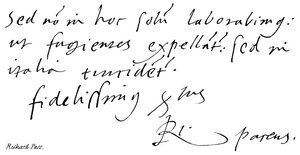 Sed nō in hoc solū laborabimꝰ:
ut fugientes expellāt: sed in
italia trucidēt.
fidelissimꝰ
Ri. paceus.
Richard Pace.